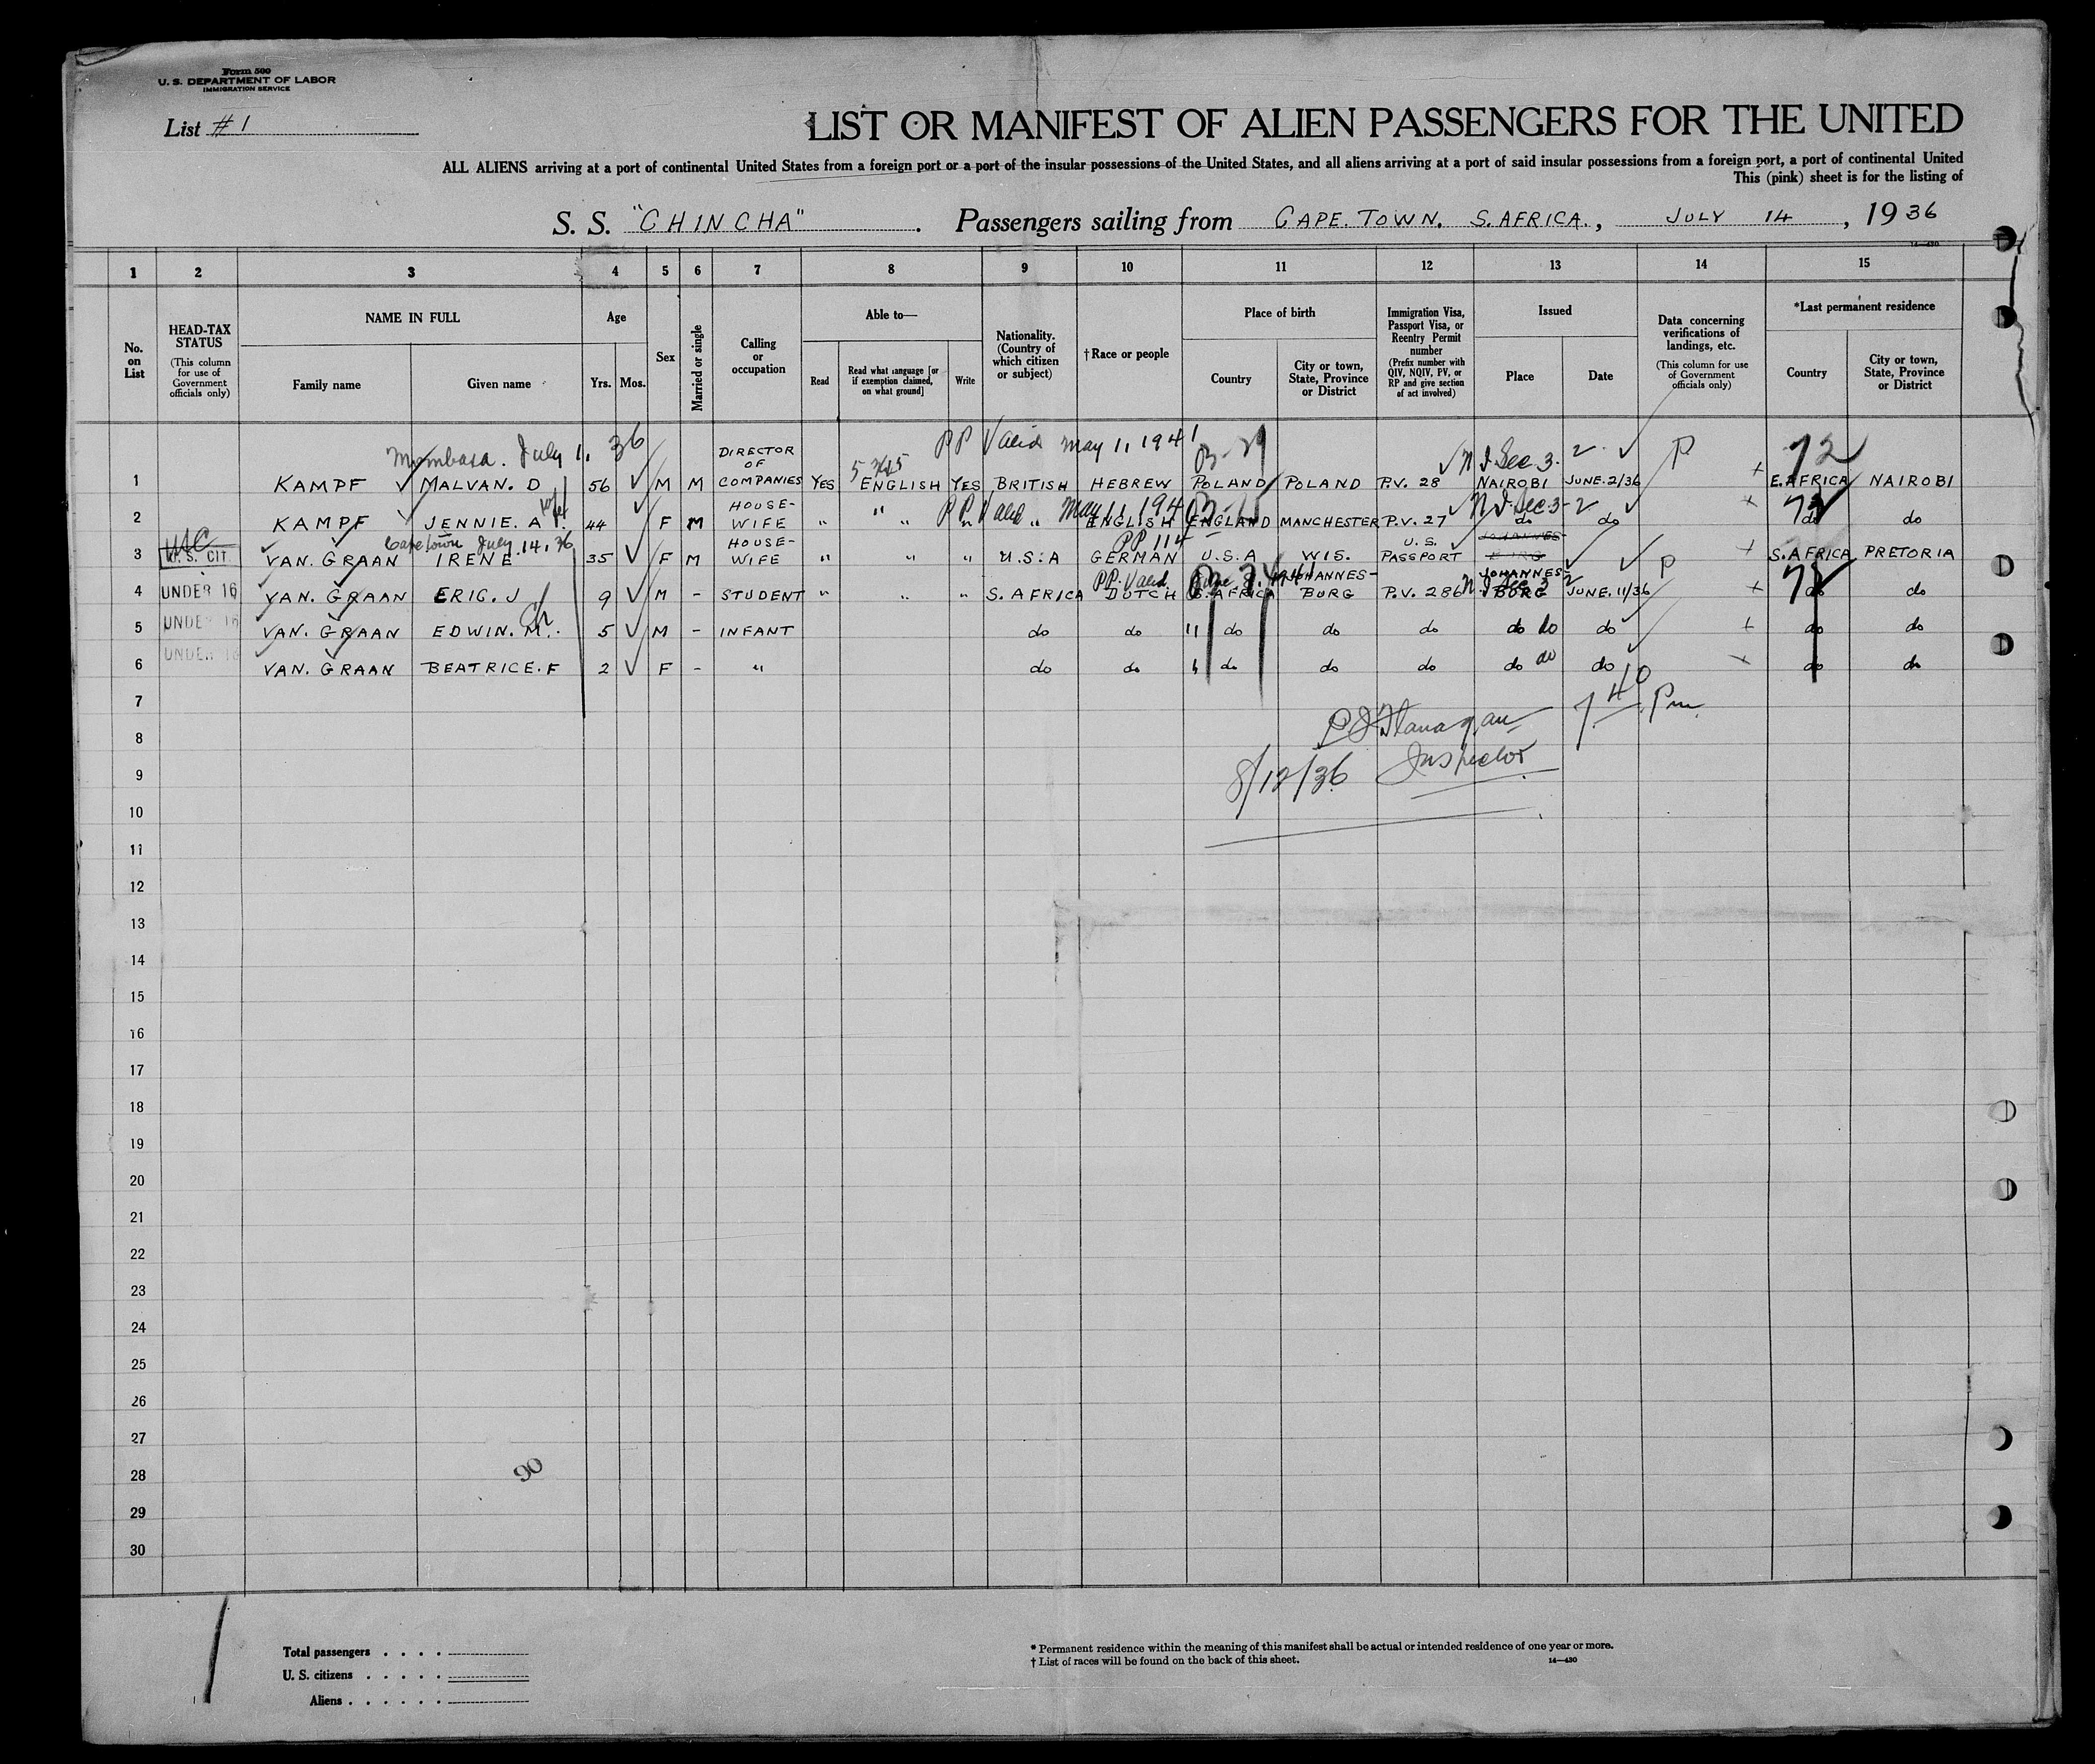 Form 500
U. S. DEPARTMENT OF LABOR
IMMIGRATION SERVICE
List #1
LIST OR MANIFEST OF ALIEN PASSENGERS FOR THE UNITED
ALL ALIENS arriving at a port of continental United States from a foreign port or a port of the insular possessions of the United States, and all aliens arriving at a port of said insular possessions from a foreign port, a port of continental United
This (pink) sheet is for the listing of
S. S. "CHINCHA". Passengers sailing from CAPE. TOWN. S. AFRICA., JULY 14, 1936
14—430
1 2 3 4 5 6 7 8 9 10 11 12 13 14 15
No. on List
HEAD-TAX STATUS (This column for use of Government officials only)
NAME IN FULL
Family name Given name
Age
Yrs. Mos.
Sex
Married or single
Calling or occupation
Able to—
Read Read what language [or if exemption claimed, on what ground] Write
Nationality. (Country of which citizen or subject)
†Race or people
Place of birth
Country City or town, State, Province or District
Immigration Visa, Passport Visa, or Reentry Permit number (Prefix number with QIV, NQIV, PV, or RP and give section of act involved)
Issued
Place Date
Data concerning verifications of landings, etc. (This column for use of Government officials only)
*Last permanent residence
Country City or town, State, Province or District
Mombasa. July 1, 36 PP Valid May 1, 1941
1 KAMPF MALVAN. D 56 M M DIRECTOR OF COMPANIES YES ENGLISH YES BRITISH HEBREW POLAND POLAND P.V. 28 NAIROBI JUNE. 2/36 P 72 E. AFRICA NAIROBI
PP Valid May 1, 194
2 KAMPF JENNIE. A 44 F M HOUSE-WIFE " " " " ENGLISH ENGLAND MANCHESTER P.V. 27 do do do do
Capetown July 14, 36 PP 114
3 U. S. CIT. VAN. GRAAN IRENE 35 F M HOUSE-WIFE " " " U.S.A GERMAN U.S.A WIS. U.S. PASSPORT S. AFRICA PRETORIA
PP. Valid
4 UNDER 16 VAN. GRAAN ERIC. J 9 M - STUDENT " " " S. AFRICA DUTCH S. AFRICA JOHANNES-BURG P.V. 286 JOHANNES-BURG JUNE. 11/36 P do do
5 UNDER 16 VAN. GRAAN EDWIN. M. 5 M - INFANT do do " do do do do do do do do
6 UNDER 16 VAN. GRAAN BEATRICE. F 2 F - " do do do do do do do do do do
7
7 40 Pm
P J Flanagan
8
Inspector
8/12/36
9
10
11
12
13
14
15
16
17
18
19
20
21
22
23
24
25
26
27
28
90
29
30
Total passengers . . . .
U. S. citizens . . . . .
Aliens . . . . . .
* Permanent residence within the meaning of this manifest shall be actual or intended residence of one year or more.
† List of races will be found on the back of this sheet.
14—430